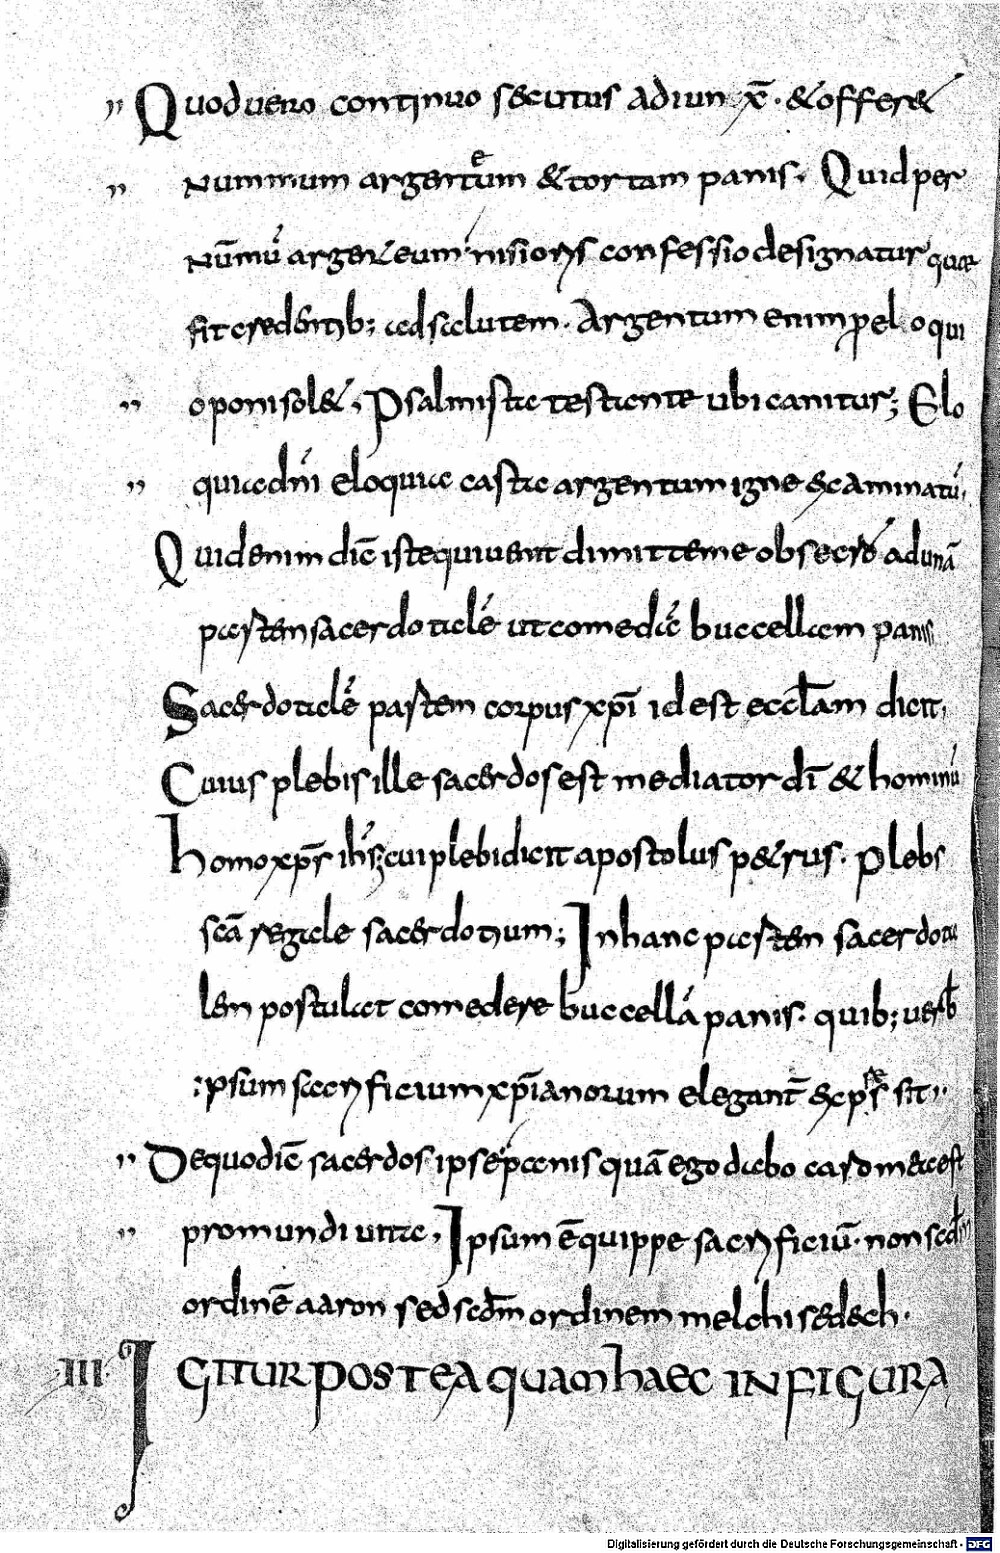 „ Quod uero continuo secutus adiunx̄. & offer&
„ nummum argenteum & tortam panis. Quid per
nūmū argenteum nisi oris confessio designatur quae
fit credentib; ad salutem. Argentum enim p eloqui
„ o poni sol&, Psalmista testante ubi canitur; Elo
„ quia dn̄i eloquia casta argentum igne examinatū,
Quid enim dic̄ iste qui uenit dimitte me obsecro ad unā
partem sacerdotalē ut comedā buccellam panis
Sacerdotalē partem corpus xp̄i id est eccl̄am dicit,
Cuius plebis ille sacerdos est mediator dī & hominū
homo xp̄s ih̄s; cui plebi dicit apostolus p&rus. plebs
scā regale sacerdotium; In hanc partem sacerdota
lem postulat comedere buccellā panis. quib; uerb
ipsum sacrificium xp̄ianorum elegant̄ expressit,
„ De quo dic̄ sacerdos ipse panis quā ego dabo caro mea est
„ pro mundi uita, Ipsum ē quippe sacrificiū. non scdm̄
ordinē aaron sed scdm̄ ordinem melchisedech.
III. IGITUR POSTEAQUAM HAEC IN FIGURA
Digitalisierung gefördert durch die Deutsche Forschungsgemeinschaft - DFG